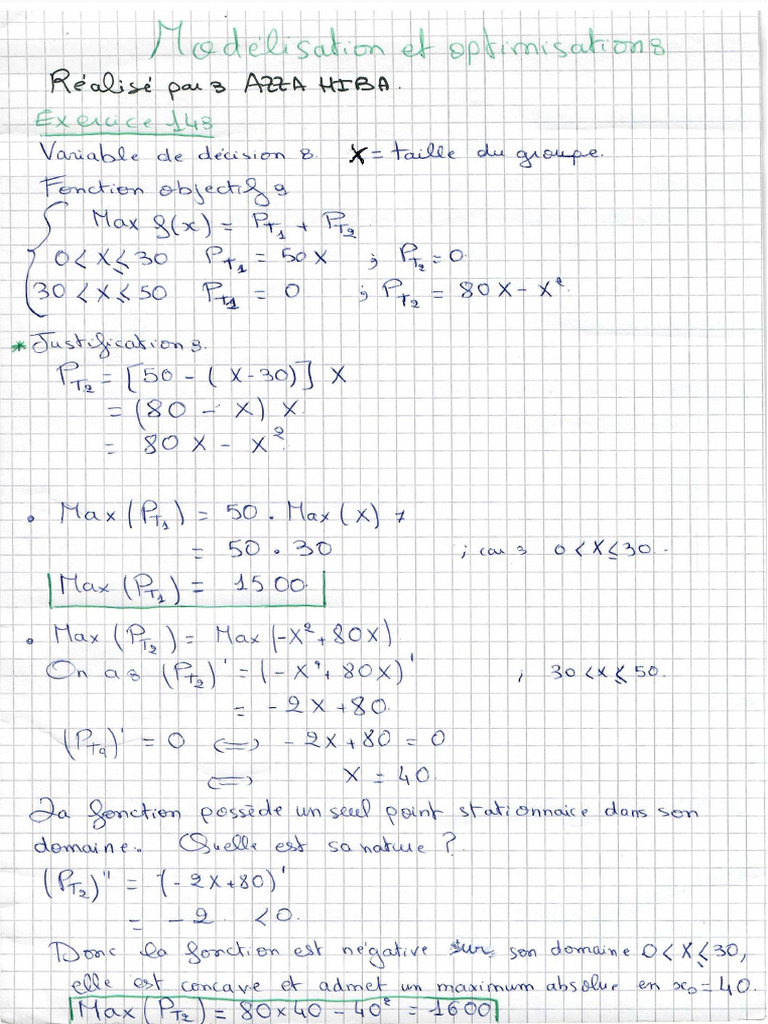 Modélisation et optimisation :
Réalisé par : AZZA HIBA.
Exercice 14 :
Variable de décision : X = taille du groupe.
Fonction objectif :
Max f(x) = PT1 + PT2
0 < X ≤ 30 PT1 = 50X ; PT2 = 0
30 < X ≤ 50 PT1 = 0 ; PT2 = 80X - X².
* Justification :
PT2 = [50 - (X-30)] X
= (80 - X) X.
= 80X - X².
• Max (PT1) = 50 . Max (X)
= 50 . 30 ; car : 0 < X ≤ 30.
Max (PT1) = 1500.
• Max (PT2) = Max (-X² + 80X)
On a : (PT2)' = (-X² + 80X)' ; 30 < X ≤ 50.
= -2X + 80.
(PT2)' = 0 <=> -2X + 80 = 0
<=> X = 40.
La fonction possède un seul point stationnaire dans son
domaine. Quelle est sa nature ?
(PT2)'' = (-2X+80)'
= -2 < 0.
Donc la fonction est négative sur son domaine 0 < X ≤ 30,
elle est concave et admet un maximum absolue en x0 = 40.
Max (PT2) = 80x40 - 40² = 1600